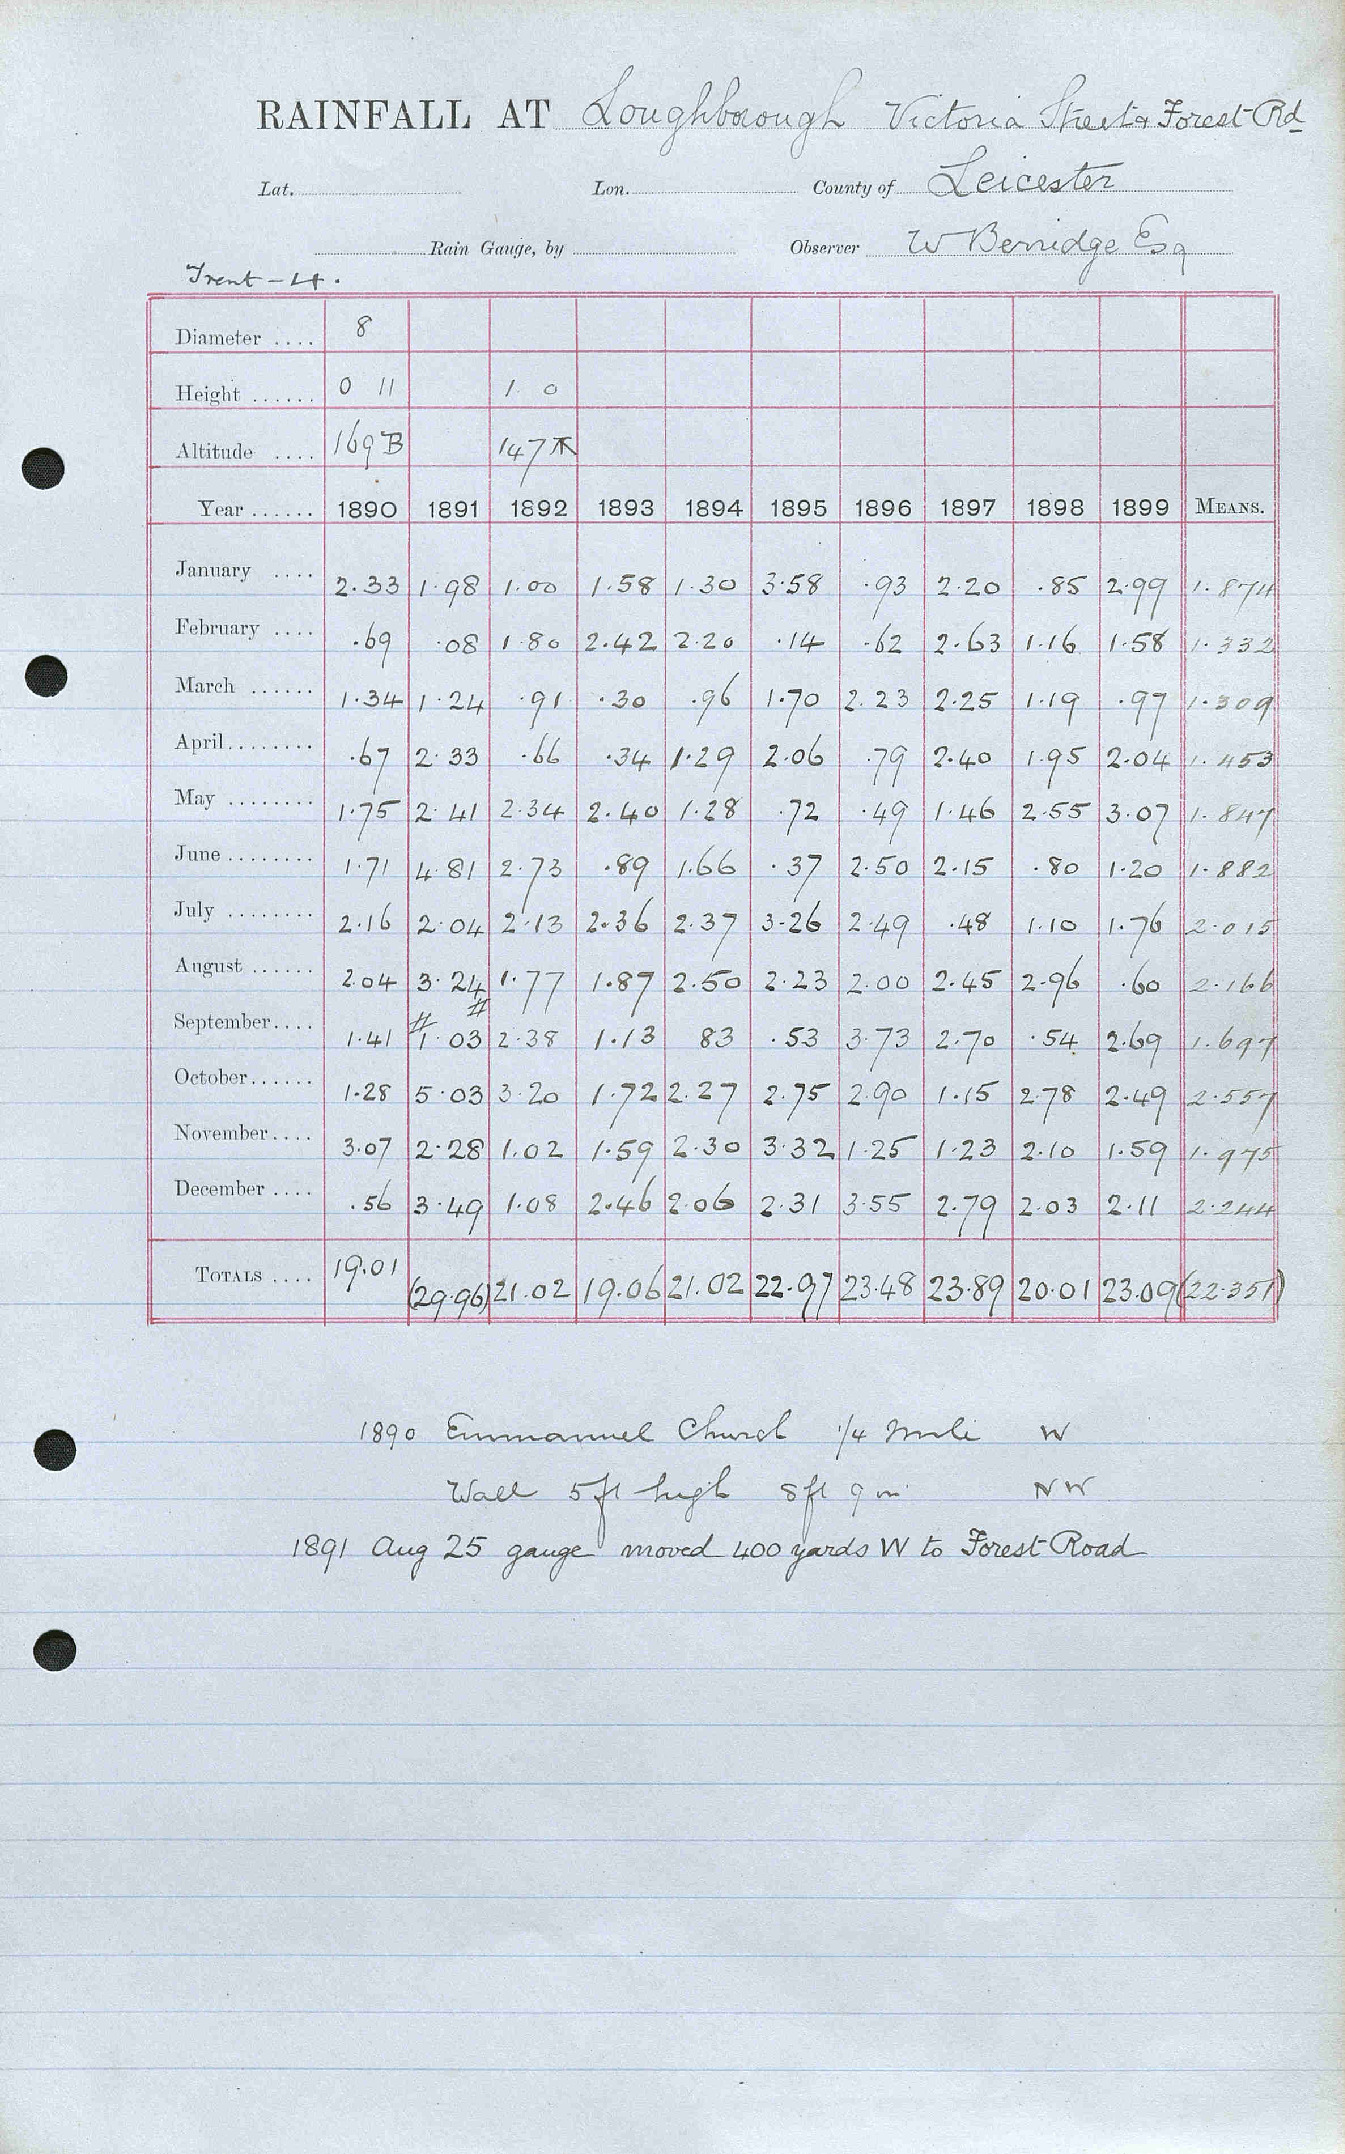 RAINFALL AT Loughborough Victoria Street & Forest Rd
Lat. Lon. County of Leicester
Rain Gauge, by Observer W Berridge Esq
Trent – 4.
Diameter .... 8
Height ...... 0 11 1 0
Altitude .... 169 B 147
Year ...... 1890 1891 1892 1893 1894 1895 1896 1897 1898 1899 MEANS.
January .... 2.33 1.98 1.00 1.58 1.30 3.58 .93 2.20 .85 2.99 1.874
February .... .69 .08 1.80 2.42 2.20 .14 .62 2.63 1.16 1.58 1.332
March ...... 1.34 1.24 .91 .30 .96 1.70 2.23 2.25 1.19 .97 1.309
April........ .67 2.33 .66 .34 1.29 2.06 .79 2.40 1.95 2.04 1.453
May ........ 1.75 2.41 2.34 2.40 1.28 .72 .49 1.46 2.55 3.07 1.847
June ........ 1.71 4.81 2.73 .89 1.66 .37 2.50 2.15 .80 1.20 1.882
July ........ 2.16 2.04 2.13 2.36 2.37 3.26 2.49 .48 1.10 1.76 2.015
August ...... 2.04 3.24 # 1.77 1.87 2.50 2.23 2.00 2.45 2.96 .60 2.166
September.... 1.41 # 1.03 2.38 1.13 83 .53 3.73 2.70 .54 2.69 1.697
October...... 1.28 5.03 3.20 1.72 2.27 2.75 2.90 1.15 2.78 2.49 2.557
November.... 3.07 2.28 1.02 1.59 2.30 3.32 1.25 1.23 2.10 1.59 1.975
December .... .56 3.49 1.08 2.46 2.06 2.31 3.55 2.79 2.03 2.11 2.244
TOTALS .... 19.01 (29.96) 21.02 19.06 21.02 22.97 23.48 23.89 20.01 23.09 (22.351)
1890 Emmanuel Church 1/4 mile W
Wall 5ft high 8ft 9 in NW
1891 Aug 25 gauge moved 400 yards W to Forest Road